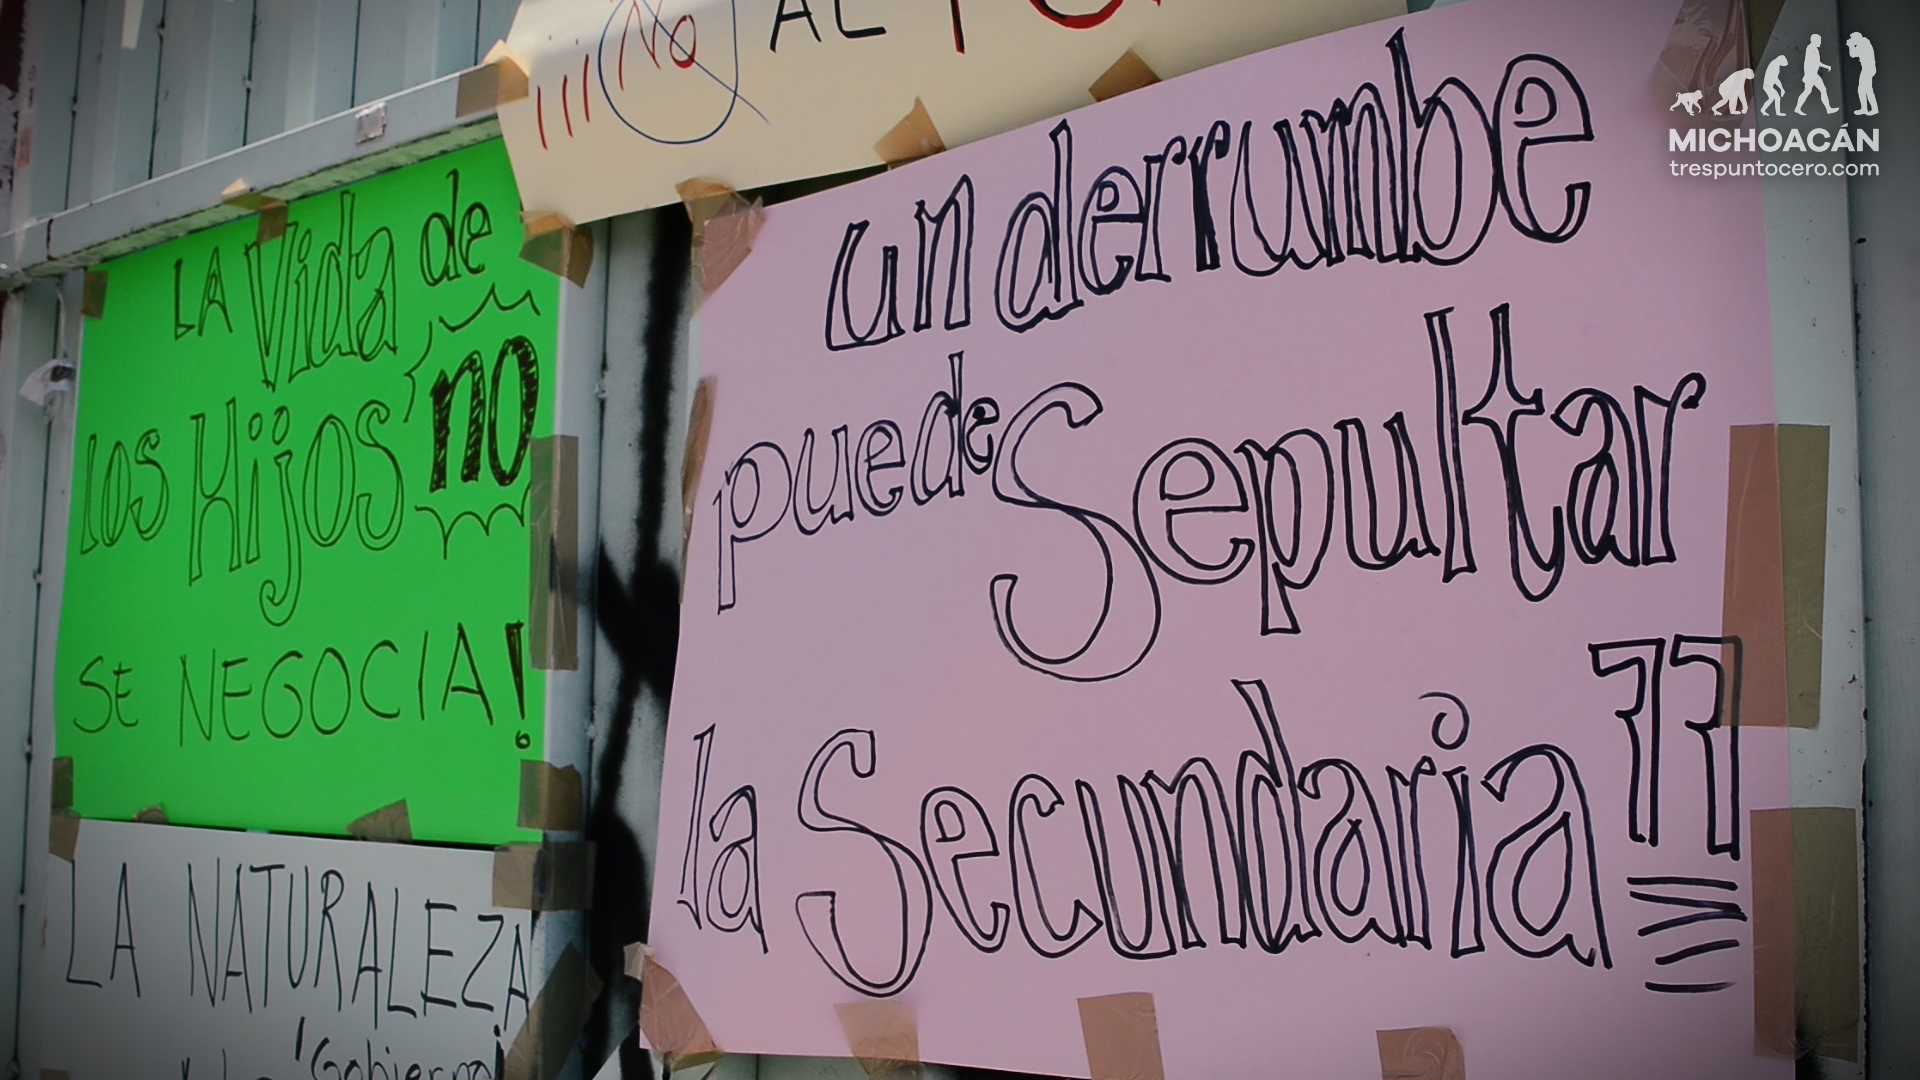 ¡¡¡No AL
LA Vida de
los Hijos no
SE NEGOCIA!
LA NATURALEZA
Gobierno
un derrumbe
puede Sepultar
la Secundaria 77
MICHOACÁN
trespuntocero.com